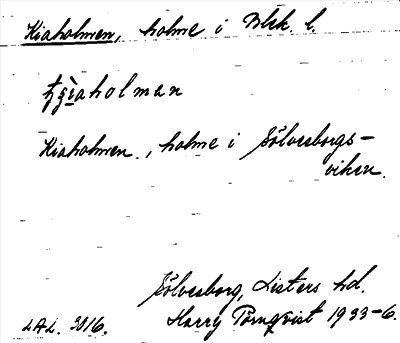 Kiaholmen, holme i Blek. l.
Kiaholmen, holme i Sölvesborgs-
viken.
Sölvesborg, Listers hd.
LAL. 3016. Harry Törnqvist 1933-6.